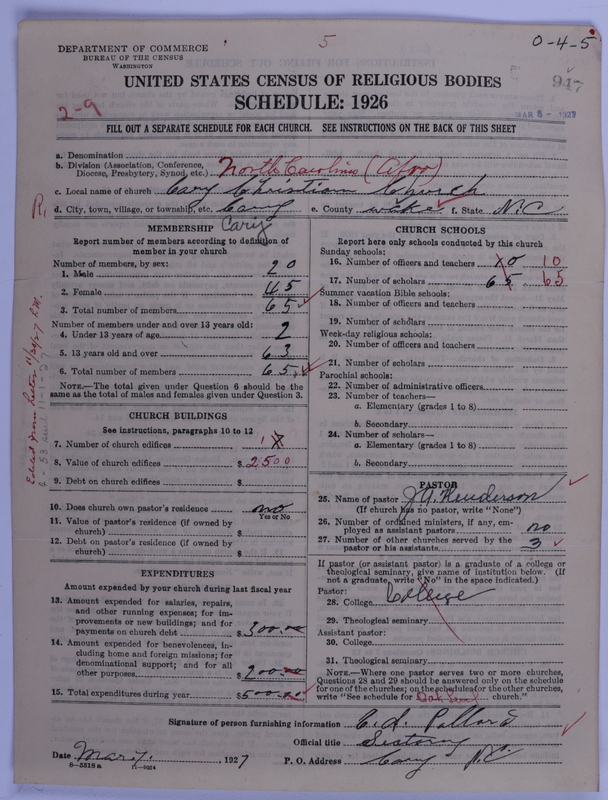 DEPARTMENT OF COMMERCE
BUREAU OF THE CENSUS
WASHINGTON
5
0-4-5
947
MAR 8 - 1927
2-9
UNITED STATES CENSUS OF RELIGIOUS BODIES
SCHEDULE: 1926
FILL OUT A SEPARATE SCHEDULE FOR EACH CHURCH. SEE INSTRUCTIONS ON THE BACK OF THIS SHEET
a. Denomination
b. Division (Association, Conference, Diocese, Presbytery, Synod, etc.) North Carolina (Afro)
c. Local name of church Cary Christian Church
R.
d. City, town, village, or township, etc. Cary e. County Wake f. State N.C
Cary
MEMBERSHIP
Report number of members according to definition of member in your church
Number of members, by sex:
1. Male 20
2. Female 45
3. Total number of members 65
Number of members under and over 13 years old:
4. Under 13 years of age 2
5. 13 years old and over 63
6. Total number of members 65
NOTE.—The total given under Question 6 should be the same as the total of males and females given under Question 3.
CHURCH BUILDINGS
See instructions, paragraphs 10 to 12
7. Number of church edifices 1
8. Value of church edifices $2500
9. Debt on church edifices $
10. Does church own pastor's residence no
Yes or No
11. Value of pastor's residence (if owned by church) $
12. Debt on pastor's residence (if owned by church) $
EXPENDITURES
Amount expended by your church during last fiscal year
13. Amount expended for salaries, repairs, and other running expenses; for improvements or new buildings; and for payments on church debt $300.00
14. Amount expended for benevolences, including home and foreign missions; for denominational support; and for all other purposes $200.00
15. Total expenditures during year $500.00
CHURCH SCHOOLS
Report here only schools conducted by this church
Sunday schools:
16. Number of officers and teachers 10 10
17. Number of scholars 65 65
Summer vacation Bible schools:
18. Number of officers and teachers
19. Number of scholars
Week-day religious schools:
20. Number of officers and teachers
21. Number of scholars
Parochial schools:
22. Number of administrative officers
23. Number of teachers—
a. Elementary (grades 1 to 8)
b. Secondary
24. Number of scholars—
a. Elementary (grades 1 to 8)
b. Secondary
PASTOR
25. Name of pastor J A Henderson
(If church has no pastor, write "None")
26. Number of ordained ministers, if any, employed as assistant pastors no
27. Number of other churches served by the pastor or his assistants 3
If pastor (or assistant pastor) is a graduate of a college or theological seminary, give name of institution below. (If not a graduate, write "No" in the space indicated.)
Pastor:
28. College College
29. Theological seminary
Assistant pastor:
30. College
31. Theological seminary
NOTE.—Where one pastor serves two or more churches, Questions 28 and 29 should be answered only on the schedule for one of the churches; on the schedule for the other churches, write "See schedule for church."
Signature of person furnishing information C. L. Pollard
Official title
Date Mar 7. 1927 P. O. Address Cary N.C
8—5518 a 11—9024